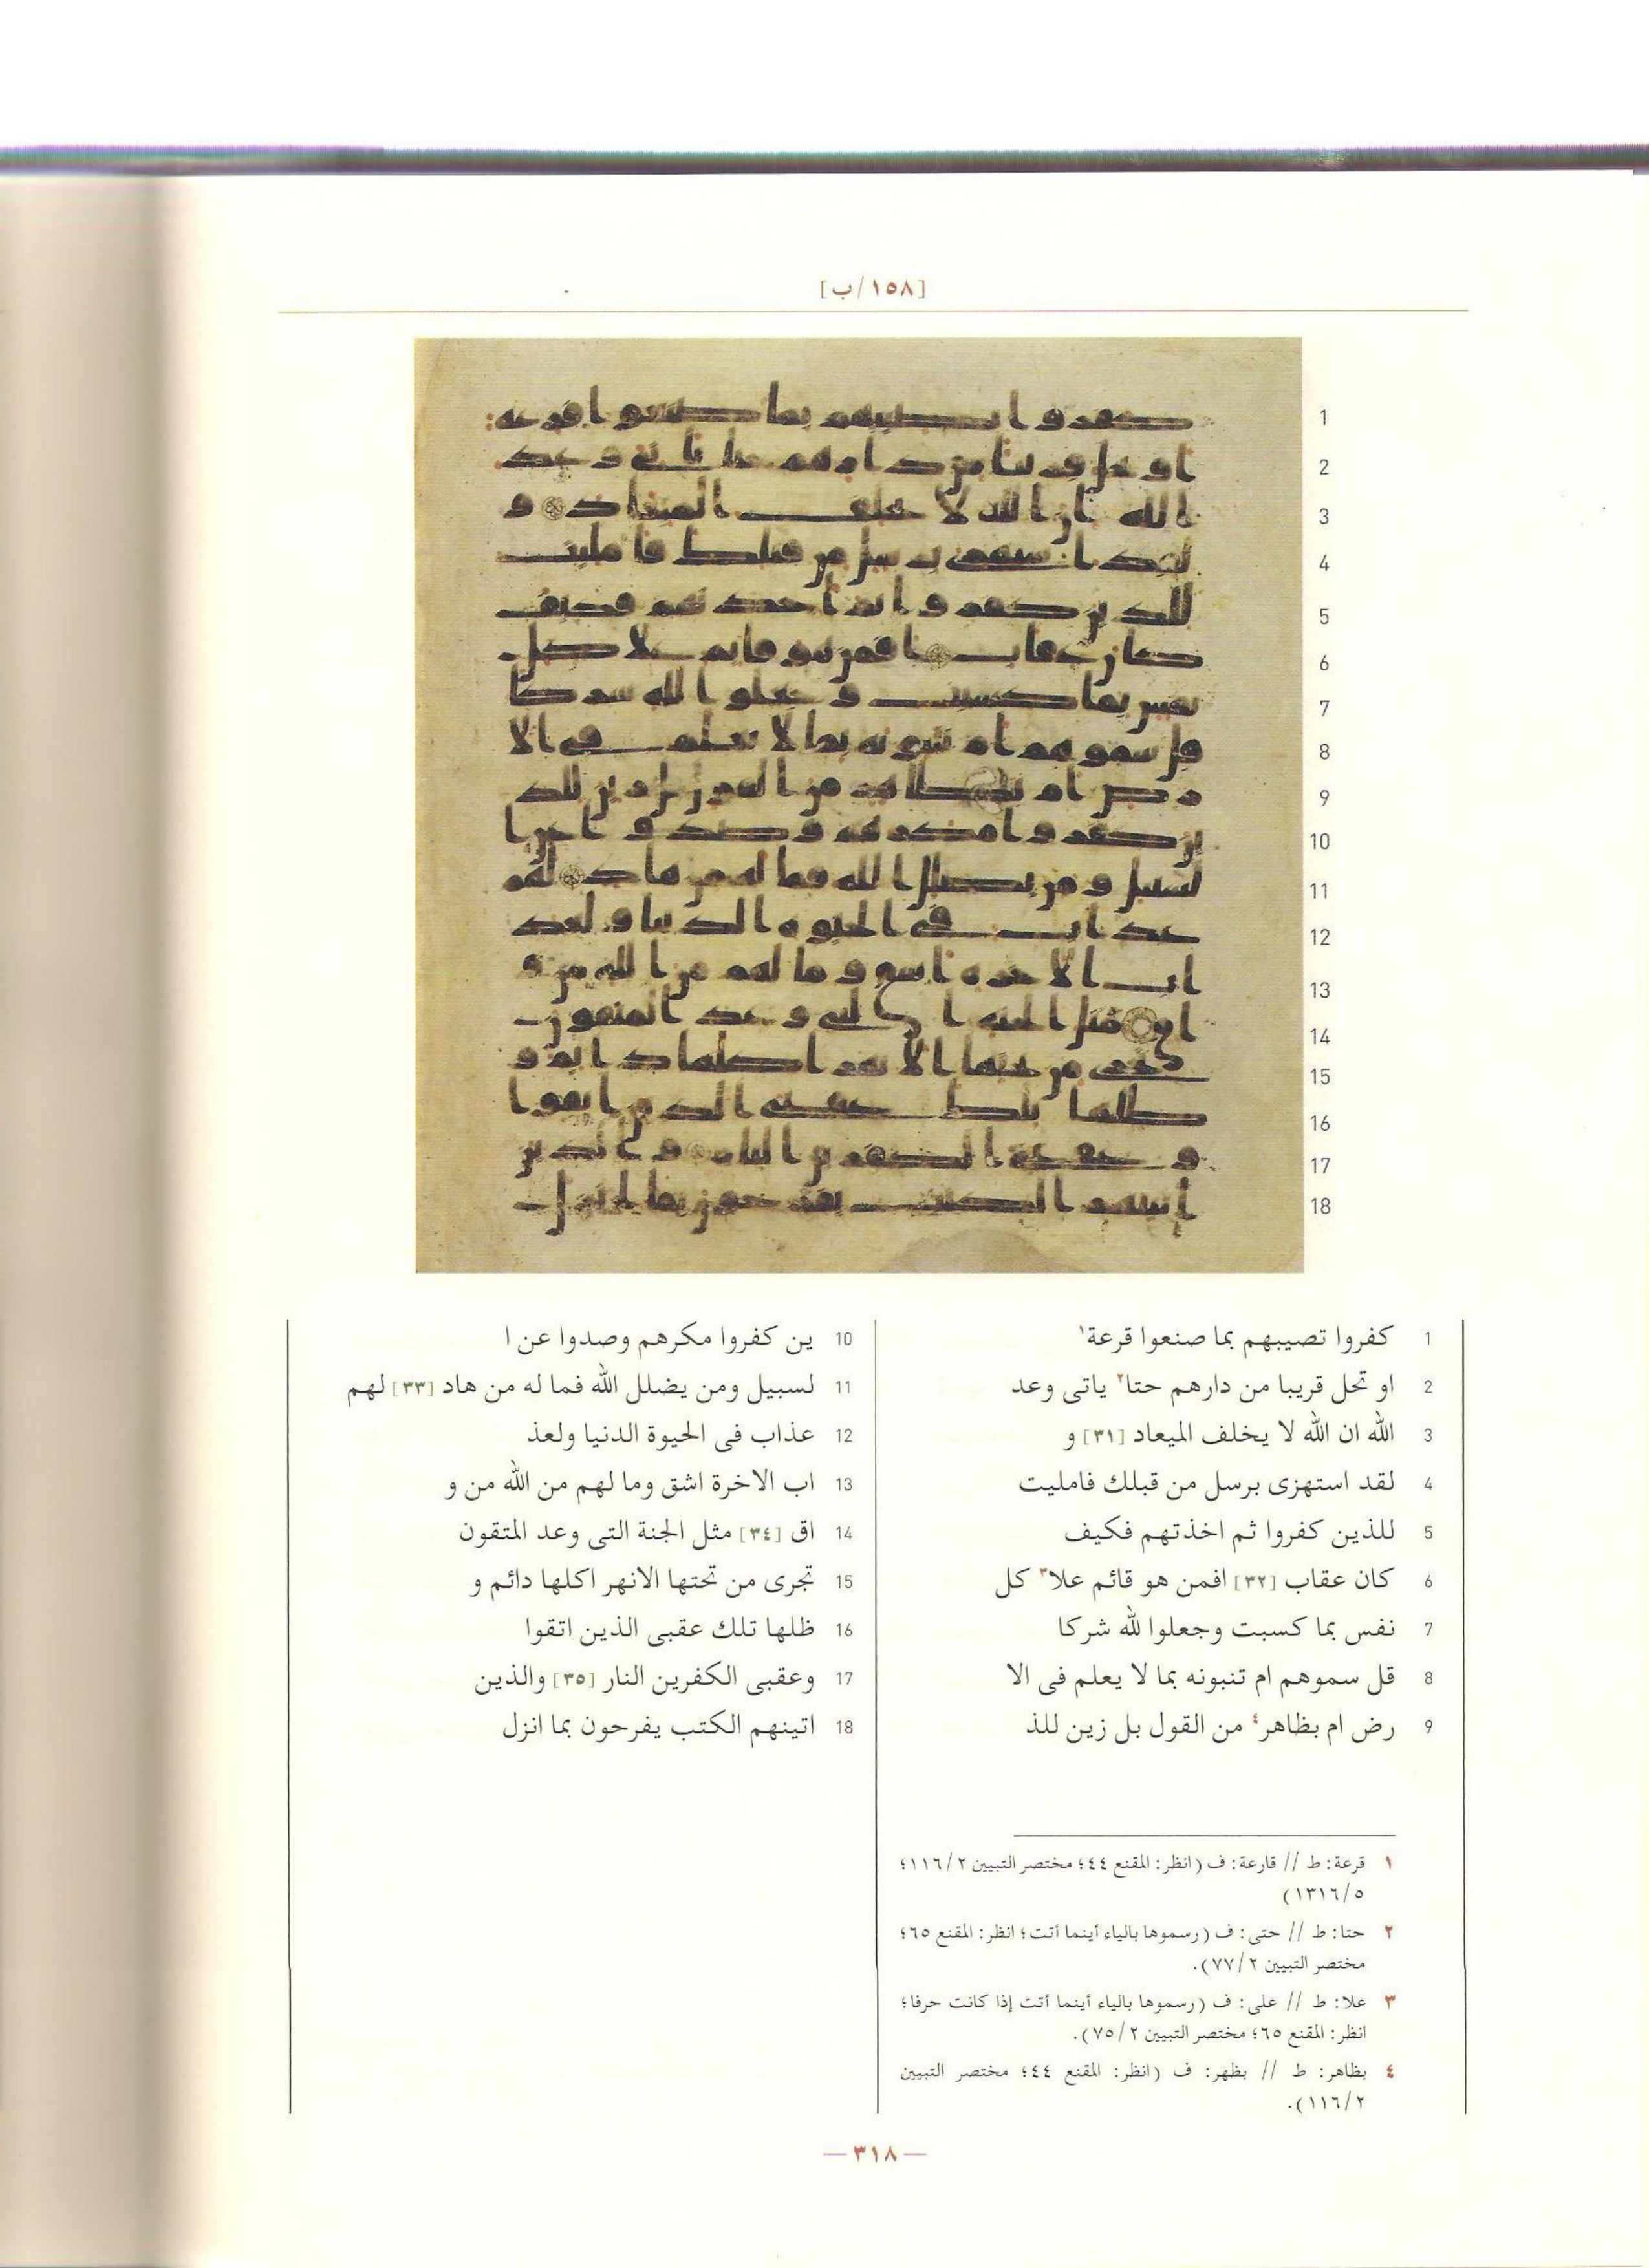 [١٥٨/ب]
1 كفروا تصيبهم بما صنعوا قرعة١
2 او تحل قريبا من دارهم حتا٢ ياتى وعد
3 الله ان الله لا يخلف الميعاد [٣١] و
4 لقد استهزى برسل من قبلك فامليت
5 للذين كفروا ثم اخذتهم فكيف
6 كان عقاب [٣٢] افمن هو قائم علا٣ كل
7 نفس بما كسبت وجعلوا لله شركا
8 قل سموهم ام تنبونه بما لا يعلم فى الا
9 رض ام بظاهر٤ من القول بل زين للذ
10 ين كفروا مكرهم وصدوا عن ا
11 لسبيل ومن يضلل الله فما له من هاد [٣٣] لهم
12 عذاب فى الحيوة الدنيا ولعذ
13 اب الاخرة اشق وما لهم من الله من و
14 اق [٣٤] مثل الجنة التى وعد المتقون
15 تجرى من تحتها الانهر اكلها دائم و
16 ظلها تلك عقبى الذين اتقوا
17 وعقبى الكفرين النار [٣٥] والذين
18 اتينهم الكتب يفرحون بما انزل
١ قرعة: ط // قارعة: ف (انظر: المقنع ٤٤؛ مختصر التبيين ١١٦/٢؛
١٣١٦/٥)
٢ حتا: ط // حتى: ف (رسموها بالياء أينما أتت؛ انظر: المقنع ٦٥؛
مختصر التبيين ٧٧/٢).
٣ علا: ط // على: ف (رسموها بالياء أينما أتت إذا كانت حرفا؛
انظر: المقنع ٦٥؛ مختصر التبيين ٧٥/٢).
٤ بظاهر: ط // بظهر: ف (انظر: المقنع ٤٤؛ مختصر التبيين
١١٦/٢).
— ٣١٨ —